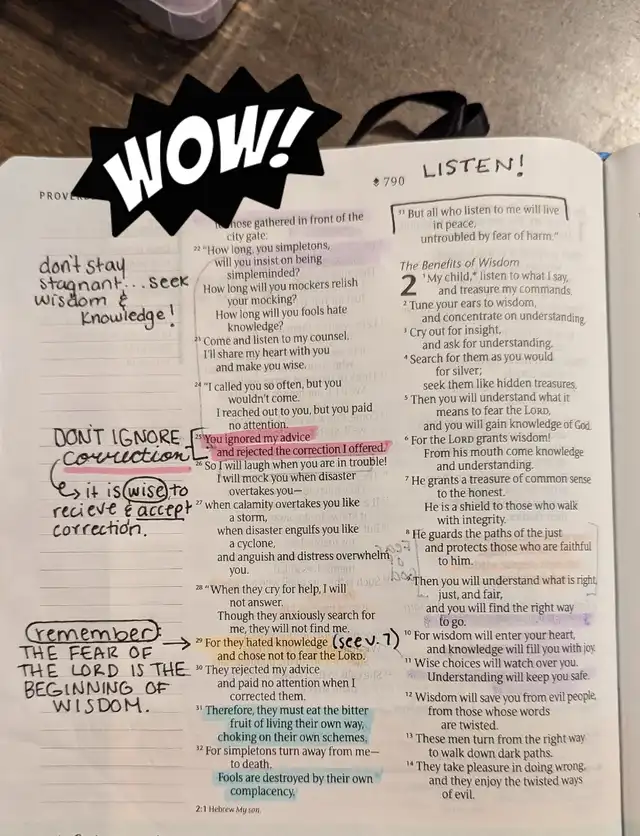 WOW!
PROVE
790
LISTEN!
don't stay
stagnant... seek
wisdom &
knowledge!
DON'T IGNORE
correction
it is wise to
recieve & accept
correction.
remember:
THE FEAR OF
THE LORD IS THE
BEGINNING OF
WISDOM.
those gathered in front of the
city gate:
22 "How long, you simpletons,
will you insist on being
simpleminded?
How long will you mockers relish
your mocking?
How long will you fools hate
knowledge?
23 Come and listen to my counsel.
I'll share my heart with you
and make you wise.
24 "I called you so often, but you
wouldn't come.
I reached out to you, but you paid
no attention.
25 You ignored my advice
and rejected the correction I offered.
26 So I will laugh when you are in trouble!
I will mock you when disaster
overtakes you—
27 when calamity overtakes you like
a storm,
when disaster engulfs you like
a cyclone,
and anguish and distress overwhelm
you.
28 "When they cry for help, I will
not answer.
Though they anxiously search for
me, they will not find me.
29 For they hated knowledge (see v. 7)
and chose not to fear the LORD.
30 They rejected my advice
and paid no attention when I
corrected them.
31 Therefore, they must eat the bitter
fruit of living their own way,
choking on their own schemes.
32 For simpletons turn away from me—
to death.
Fools are destroyed by their own
complacency.
2:1 Hebrew My son.
33 "But all who listen to me will live
in peace,
untroubled by fear of harm."
The Benefits of Wisdom
2 1 My child,* listen to what I say,
and treasure my commands.
2 Tune your ears to wisdom,
and concentrate on understanding.
3 Cry out for insight,
and ask for understanding.
4 Search for them as you would
for silver;
seek them like hidden treasures.
5 Then you will understand what it
means to fear the LORD,
and you will gain knowledge of God.
6 For the LORD grants wisdom!
From his mouth come knowledge
and understanding.
7 He grants a treasure of common sense
to the honest.
He is a shield to those who walk
with integrity.
8 He guards the paths of the just
and protects those who are faithful
to him.
9 Then you will understand what is right,
just, and fair,
and you will find the right way
to go.
10 For wisdom will enter your heart,
and knowledge will fill you with joy.
11 Wise choices will watch over you.
Understanding will keep you safe.
12 Wisdom will save you from evil people,
from those whose words
are twisted.
13 These men turn from the right way
to walk down dark paths.
14 They take pleasure in doing wrong,
and they enjoy the twisted ways
of evil.